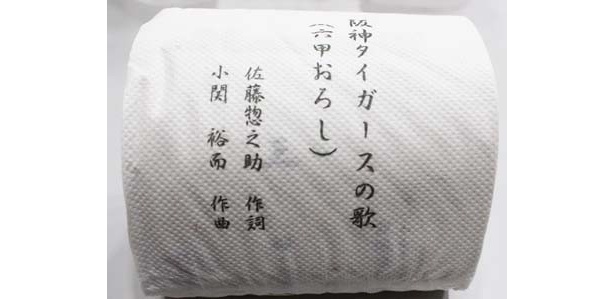 阪神タイガースの歌
（六甲おろし）
佐藤惣之助 作詞
小関 裕而 作曲